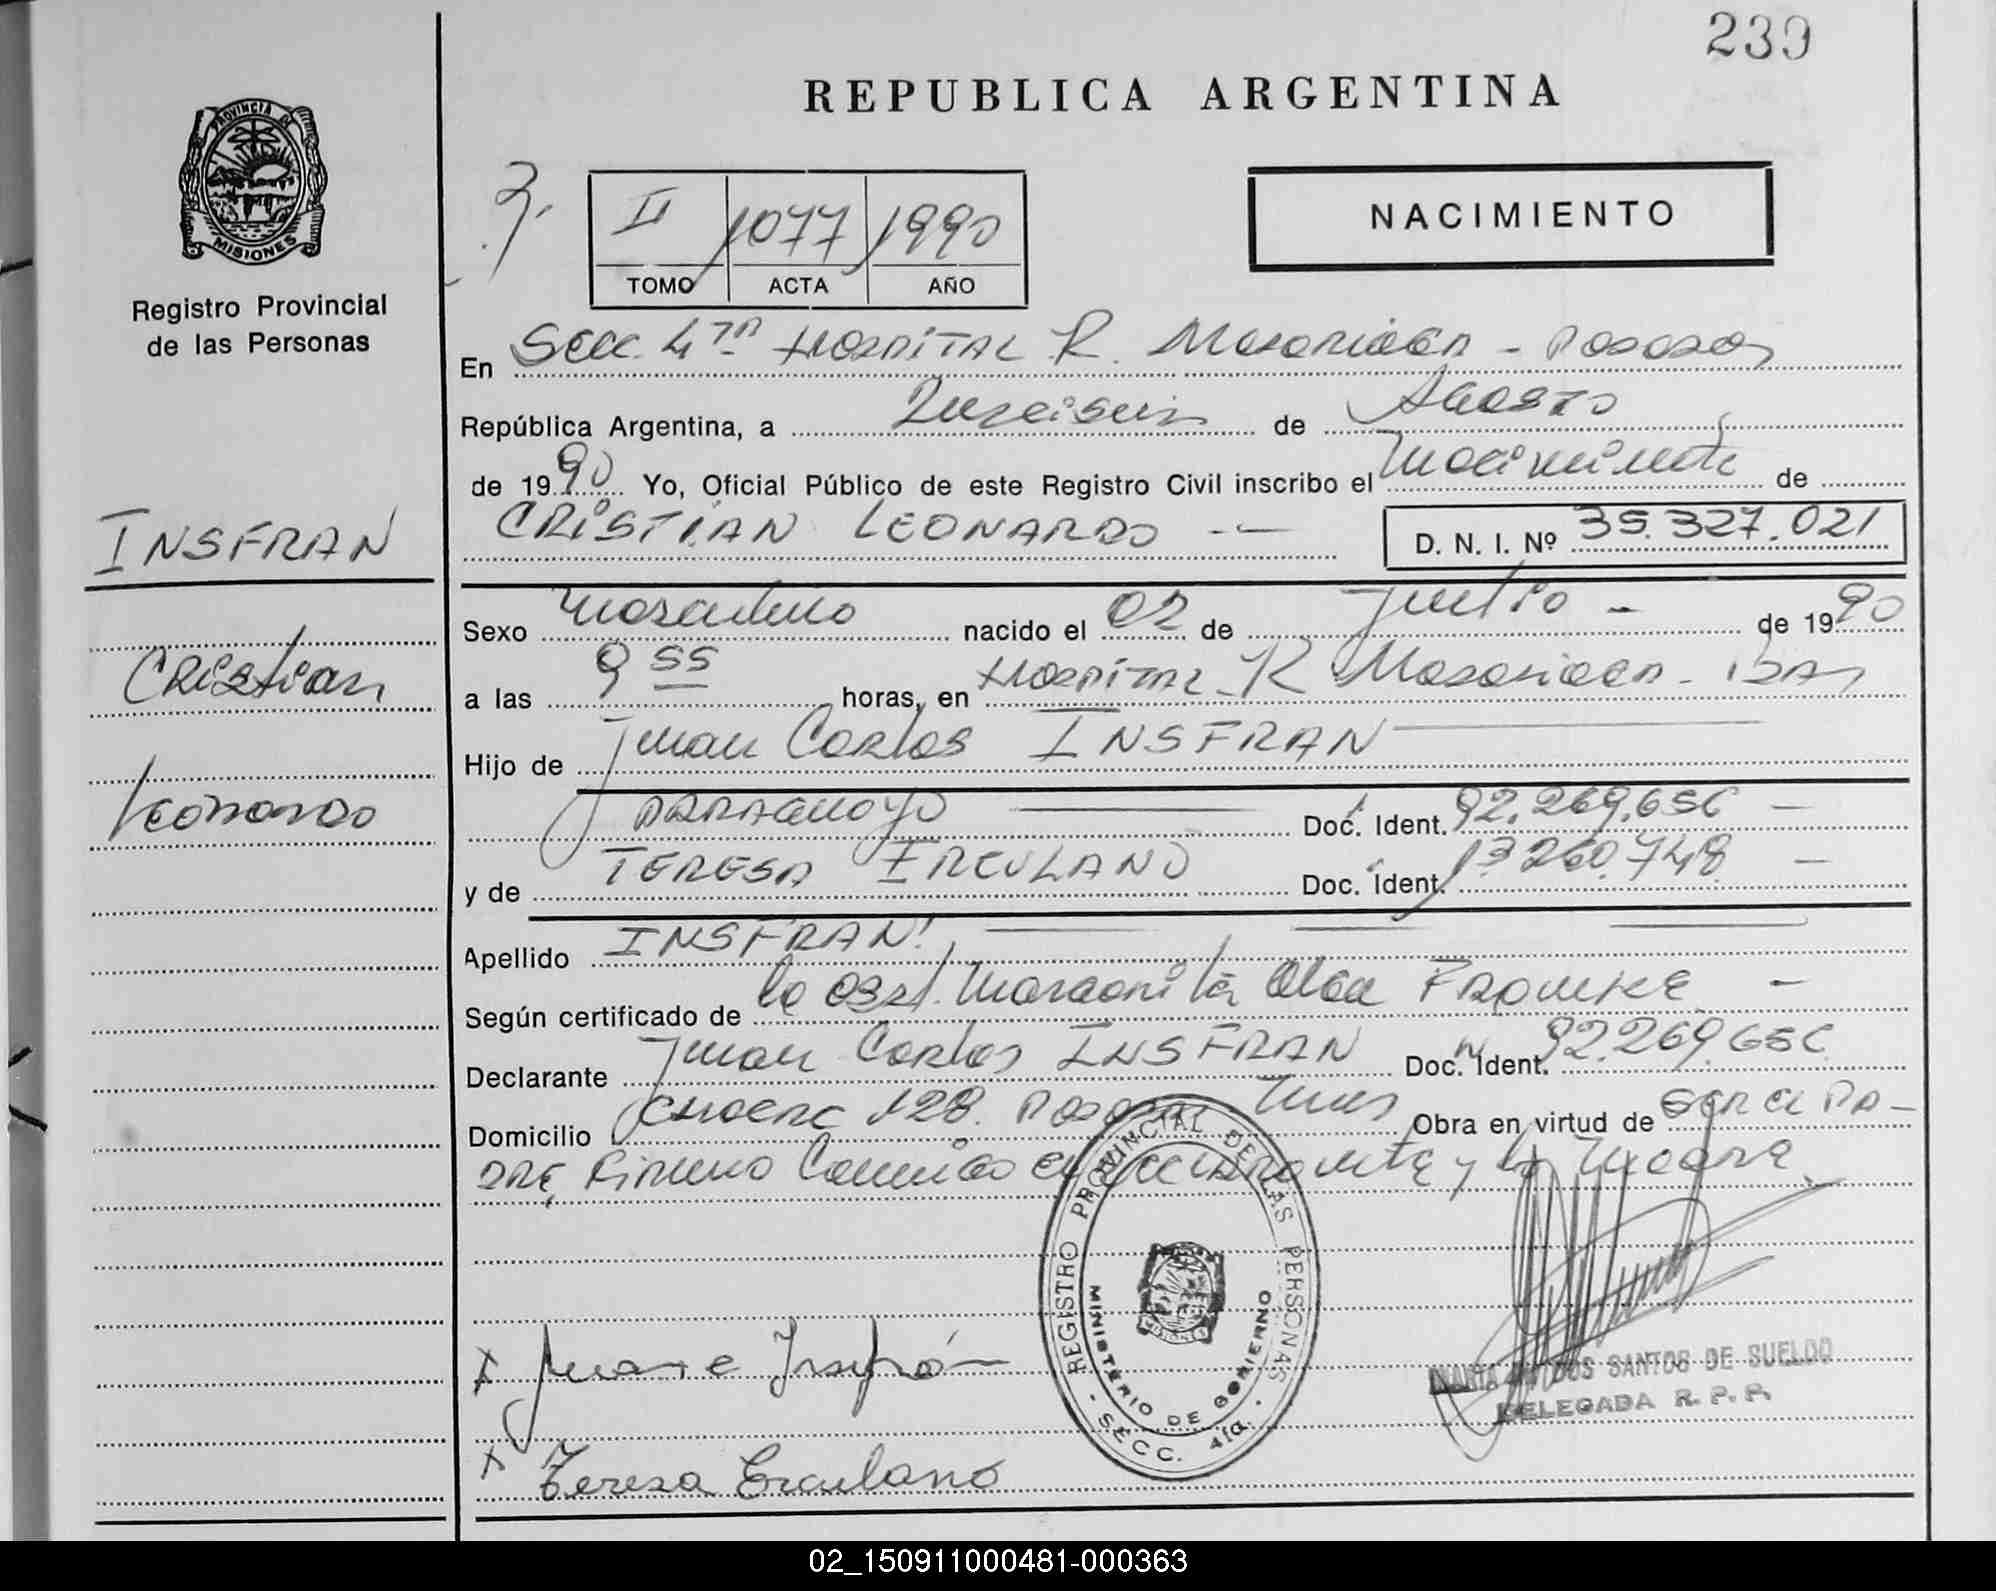 239
REPUBLICA ARGENTINA
PROVINCIA DE
MISIONES
Registro Provincial
de las Personas
II 1077 1990
TOMO ACTA AÑO
NACIMIENTO
En Secc. 4ta Hospital R. Madariaga - Posadas
República Argentina, a Dieciseis de Agosto
de 1990 Yo, Oficial Público de este Registro Civil inscribo el Nacimiento de
CRISTIAN LEONARDO --
D. N. I. Nº 35.327.021
INSFRAN
Cristian
Leonardo
Sexo Masculino nacido el 02 de Julio - de 1990
a las 9 55 horas, en Hospital R Madariaga -
Hijo de Juan Carlos INSFRAN
PARAGUAYO Doc. Ident. 92.269.656 -
y de TERESA ERCULANO Doc. Ident. 13260.748 -
Apellido INSFRAN.
Según certificado de la Obst. Margarita Olga -
Declarante Juan Carlos INSFRAN Doc. Ident. 92.269.656
Domicilio 128. Posadas Mnes Obra en virtud de Ser el Pa-
dre, y la Madre
REGISTRO PROVINCIAL DE LAS PERSONAS
MINISTERIO DE GOBIERNO
MISIONES
- SECC. 4ta. -
Juan C Insfrán
Teresa Erculano
MARIA DOS SANTOS DE SUELDO
DELEGADA R. P. P.
02_150911000481-000363